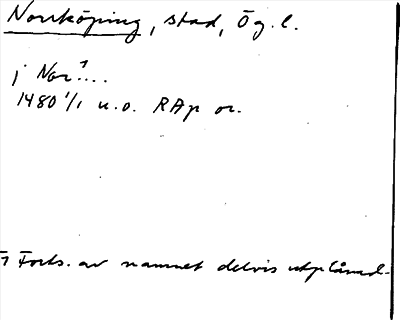 Norrköping, stad, Ög. l.
j Nor¹...
1480 1/1 u.o. RAp or.
1 Forts. av namnet delvis utplånad.